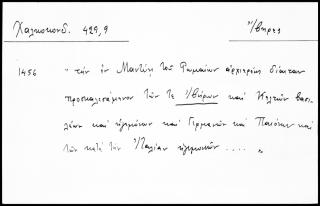 Χαλκοκονδ. 429,9
Ἴβηρες
1456
"τὴν ἐν Μαντύῃ τοῦ Ῥωμαίων ἀρχιερέως δίαιταν
προσκαλεσάμενον τῶν τε Ἰβήρων καὶ Κελτῶν βασι-
λέων καὶ ἡγεμόνων καὶ Γερμανῶν καὶ Παιόνων καὶ
τῶν κατὰ τὴν Ἰταλίαν ἡγεμονιῶν .... "